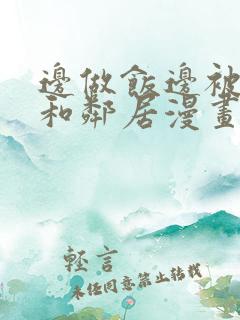 邊做飯邊被
和鄰居漫畫
輕言
未經同意禁止转载